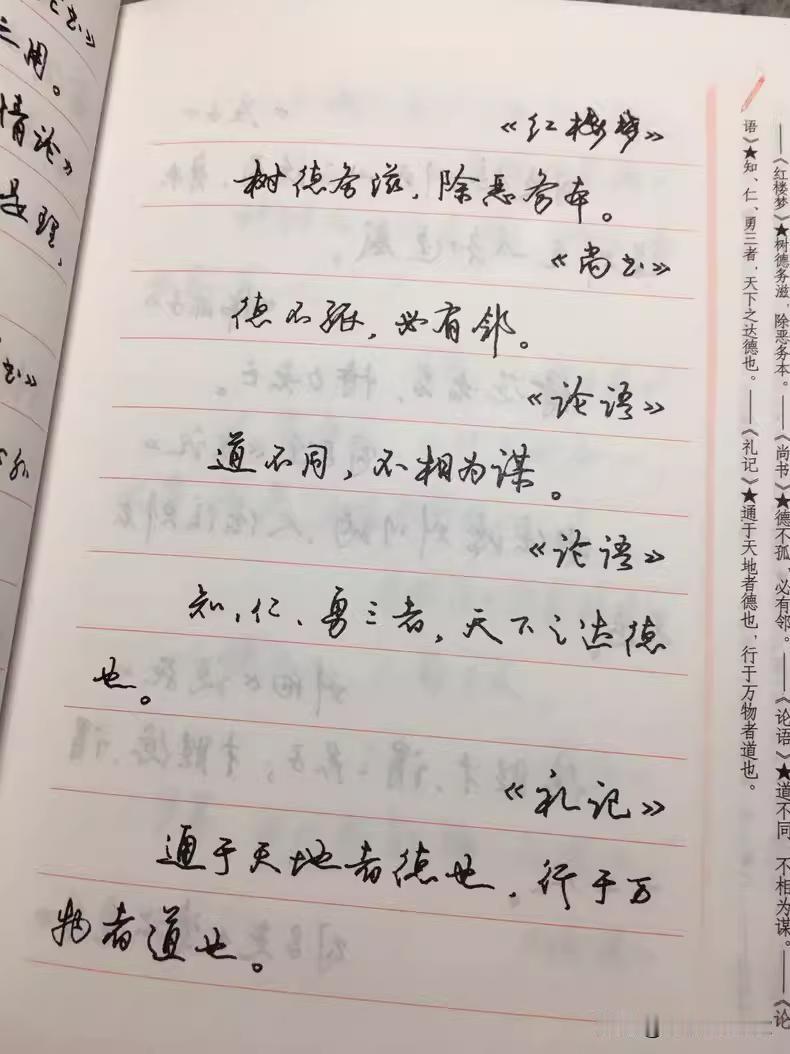 《红楼梦》
树德务滋，除恶务本。
《尚书》
德不孤，必有邻。
《论语》
道不同，不相为谋。
《论语》
知、仁、勇三者，天下之达德
也。
《礼记》
通于天地者德也，行于万
物者道也。
二用。
情论》
是理，
——《红楼梦》★树德务滋，除恶务本。——《尚书》★德不孤，必有邻。——《论语》★道不同，不相为谋。——《论
语》★知、仁、勇三者，天下之达德也。——《礼记》★通于天地者德也，行于万物者道也。